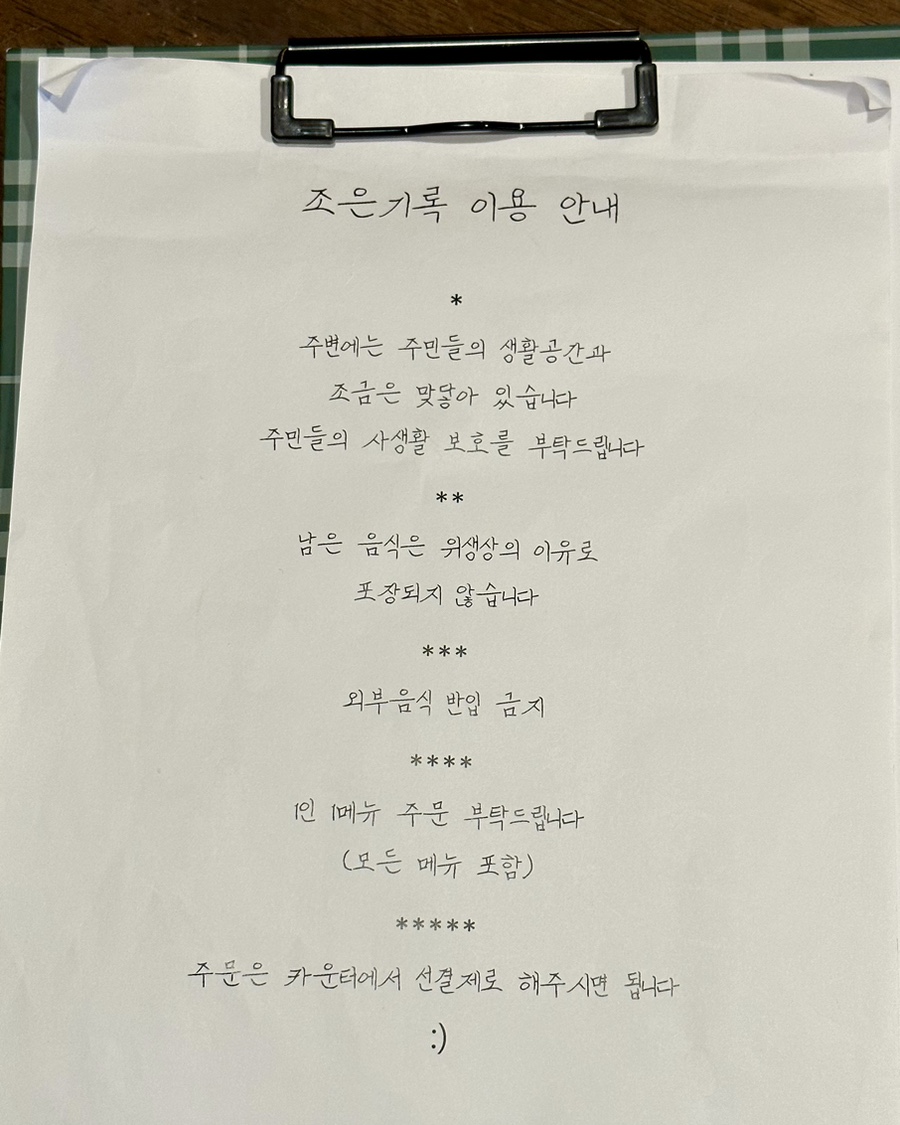 조은기록 이용 안내
*
주변에는 주민들의 생활공간과
조금은 맞닿아 있습니다
주민들의 사생활 보호를 부탁드립니다
**
남은 음식은 위생상의 이유로
포장되지 않습니다
***
외부음식 반입 금지
****
1인 1메뉴 주문 부탁드립니다
(모든 메뉴 포함)
*****
주문은 카운터에서 선결제로 해주시면 됩니다
:)